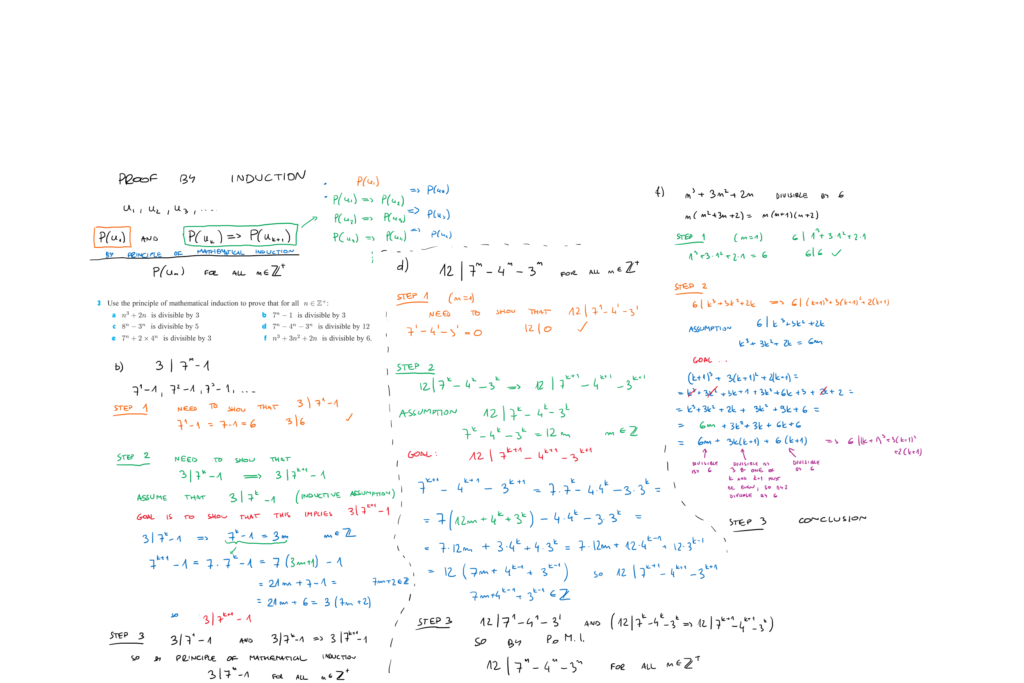 PROOF BY INDUCTION
u₁, u₂, u₃, ....
P(u₁) AND P(uₖ) => P(uₖ₊₁)
BY PRINCIPLE OF MATHEMATICAL INDUCTION
P(uₙ) FOR ALL n∈ℤ⁺
P(u₁)
P(u₁) => P(u₂) => P(u₂)
P(u₂) => P(u₃) => P(u₃)
P(u₃) => P(u₄) => P(u₄)
3 Use the principle of mathematical induction to prove that for all n ∈ ℤ⁺:
a n³ + 2n is divisible by 3
b 7ⁿ − 1 is divisible by 3
c 8ⁿ − 3ⁿ is divisible by 5
d 7ⁿ − 4ⁿ − 3ⁿ is divisible by 12
e 7ⁿ + 2 × 4ⁿ is divisible by 3
f n³ + 3n² + 2n is divisible by 6.
b) 3 | 7ⁿ − 1
7¹−1, 7²−1, 7³−1, ...
STEP 1 NEED TO SHOW THAT 3 | 7¹−1
7¹−1 = 7−1 = 6 3|6 ✓
STEP 2 NEED TO SHOW THAT
3 | 7ᵏ−1 => 3 | 7ᵏ⁺¹−1
ASSUME THAT 3 | 7ᵏ−1 (INDUCTIVE ASSUMPTION)
GOAL IS TO SHOW THAT THIS IMPLIES 3 | 7ᵏ⁺¹−1
3 | 7ᵏ−1 => 7ᵏ−1 = 3m m∈ℤ
7ᵏ⁺¹−1 = 7·7ᵏ−1 = 7(3m+1) − 1
= 21m + 7−1 = 7m+2∈ℤ
= 21m + 6 = 3(7m+2)
SO 3 | 7ᵏ⁺¹−1
STEP 3 3 | 7¹−1 AND 3 | 7ᵏ−1 => 3 | 7ᵏ⁺¹−1
SO BY PRINCIPLE OF MATHEMATICAL INDUCTION
3 | 7ⁿ−1 FOR ALL n∈ℤ⁺
d) 12 | 7ⁿ − 4ⁿ − 3ⁿ FOR ALL n∈ℤ⁺
STEP 1 (n=1)
NEED TO SHOW THAT 12 | 7¹−4¹−3¹
7¹−4¹−3¹ = 0 12|0 ✓
STEP 2
12 | 7ᵏ−4ᵏ−3ᵏ => 12 | 7ᵏ⁺¹−4ᵏ⁺¹−3ᵏ⁺¹
ASSUMPTION 12 | 7ᵏ−4ᵏ−3ᵏ
7ᵏ−4ᵏ−3ᵏ = 12m m∈ℤ
GOAL: 12 | 7ᵏ⁺¹−4ᵏ⁺¹−3ᵏ⁺¹
7ᵏ⁺¹ − 4ᵏ⁺¹ − 3ᵏ⁺¹ = 7·7ᵏ − 4·4ᵏ − 3·3ᵏ =
= 7(12m + 4ᵏ + 3ᵏ) − 4·4ᵏ − 3·3ᵏ =
= 7·12m + 3·4ᵏ + 4·3ᵏ = 7·12m + 12·4ᵏ⁻¹ + 12·3ᵏ⁻¹
= 12(7m + 4ᵏ⁻¹ + 3ᵏ⁻¹) SO 12 | 7ᵏ⁺¹−4ᵏ⁺¹−3ᵏ⁺¹
7m+4ᵏ⁻¹+3ᵏ⁻¹∈ℤ
STEP 3 12 | 7¹−4¹−3¹ AND (12 | 7ᵏ−4ᵏ−3ᵏ => 12 | 7ᵏ⁺¹−4ᵏ⁺¹−3ᵏ⁺¹)
SO BY P o M. I.
12 | 7ⁿ−4ⁿ−3ⁿ FOR ALL n∈ℤ⁺
f) n³ + 3n² + 2n DIVISIBLE BY 6
n(n²+3n+2) = n(n+1)(n+2)
STEP 1 (n=1) 6 | 1³+3·1²+2·1
1³+3·1²+2·1 = 6 6|6 ✓
STEP 2
6 | k³+3k²+2k => 6 | (k+1)³+3(k+1)²+2(k+1)
ASSUMPTION 6 | k³+3k²+2k
k³+3k²+2k = 6m
GOAL ...
(k+1)³ + 3(k+1)² + 2(k+1) =
= k³+3k²+3k+1+3k²+6k+3+2k+2 =
= k³+3k²+2k + 3k²+9k+6 =
= 6m + 3k²+3k+6k+6
= 6m + 3k(k+1) + 6(k+1) => 6 | (k+1)³+3(k+1)²+2(k+1)
DIVISIBLE BY 6
DIVISIBLE BY 3 & ONE OF k AND k+1 MUST BE EVEN, SO ALSO DIVISIBLE BY 6
DIVISIBLE BY 6
STEP 3 CONCLUSION